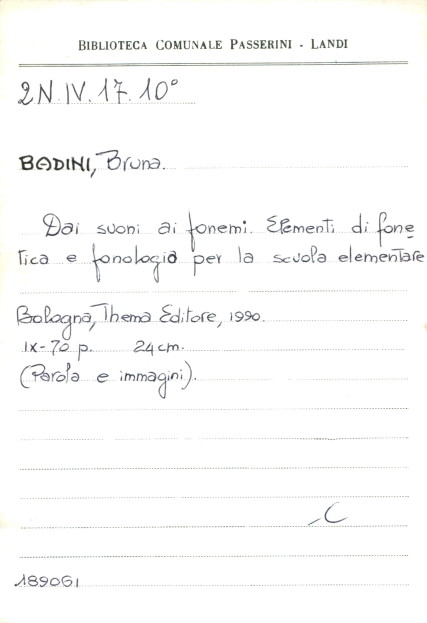 BIBLIOTECA COMUNALE PASSERINI - LANDI
2N.IV.17.10°
BADINI, Bruna.
Dai suoni ai fonemi. Elementi di fone
tica e fonologia per la scuola elementare
Bologna, Thema Editore, 1990.
IX-70 p. 24 cm.
(Parola e immagini).
C
189061